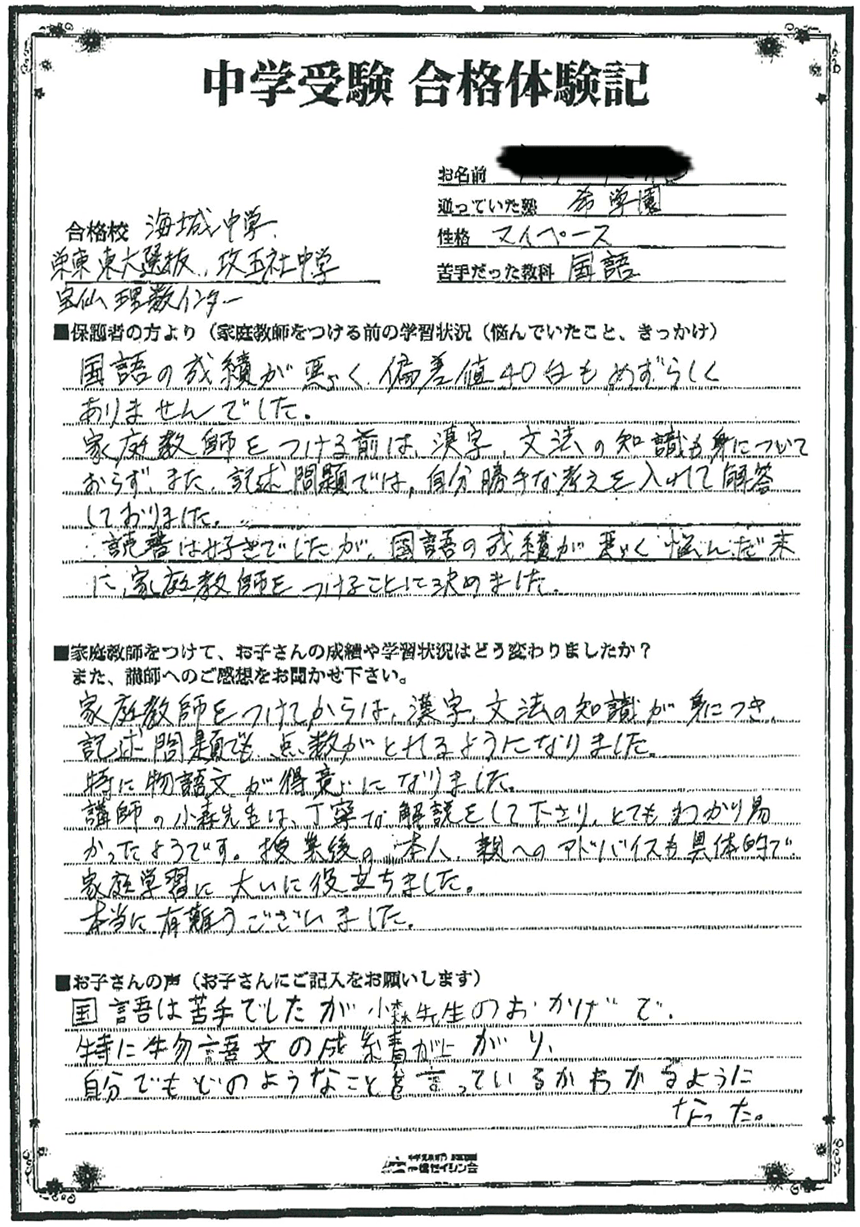 中学受験 合格体験記
お名前
通っていた塾 希学園
合格校 海城中学、
性格 マイペース
栄東 東大選抜、攻玉社中学
苦手だった教科 国語
宝仙 理数インター
■保護者の方より（家庭教師をつける前の学習状況（悩んでいたこと、きっかけ）
国語の成績が悪く、偏差値40台もめずらしく
ありませんでした。
家庭教師をつける前は、漢字、文法の知識も身について
おらず、また、記述問題では、自分勝手な考えを入れて解答
しておりました。
読書は好きでしたが、国語の成績が悪く悩んだ末
に、家庭教師をつけることに決めました。
■家庭教師をつけて、お子さんの成績や学習状況はどう変わりましたか？
また、講師へのご感想をお聞かせ下さい。
家庭教師をつけてからは、漢字、文法の知識が身につき、
記述問題でも点数がとれるようになりました。
特に物語文が得意になりました。
講師の小森先生は、丁寧な解説をして下さり、とてもわかり易
かったようです。授業後の本人、親へのアドバイスも具体的で、
家庭学習に大いに役立ちました。
本当に有難うございました。
■お子さんの声（お子さんにご記入をお願いします）
国語は苦手でしたが小森先生のおかげで、
特に物語文の成績が上がり、
自分でもどのようなことを言っているかわかるように
なった。